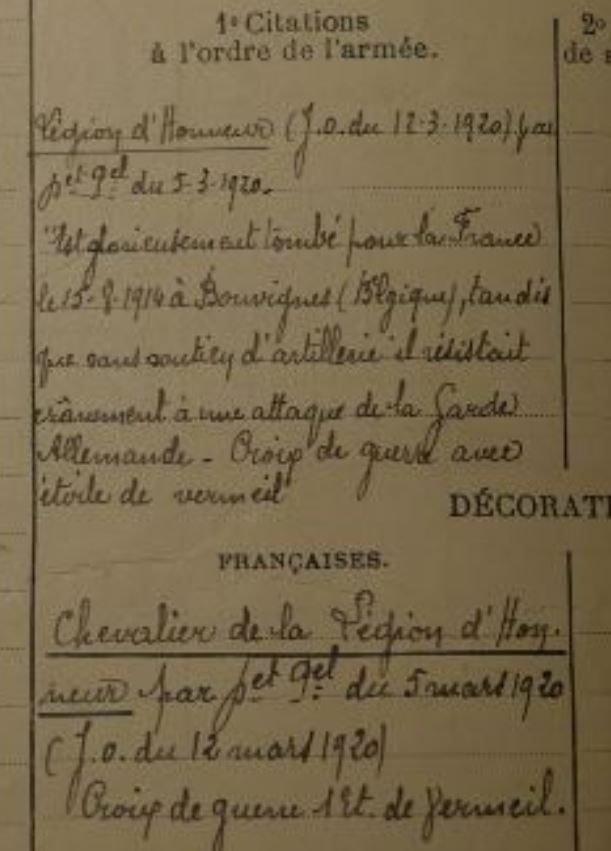 1º Citations
à l'ordre de l'armée.
2º
de s
Légion d'Honneur (J.O. du 12-3-1920) par
pet gel du 5-3-1920.
"Est glorieusement tombé pour la France
le 15-8-1914 à Bouvignes (Belgique), tandis
que sans soutien d'artillerie il résistait
crânement à une attaque de la Garde
Allemande - Croix de guerre avec
étoile de vermeil"
DÉCORATI
FRANÇAISES.
Chevalier de la Légion d'Hon-
neur par pet gel du 5 mars 1920
(J.O. du 12 mars 1920)
Croix de guerre 1 Et. de Vermeil.